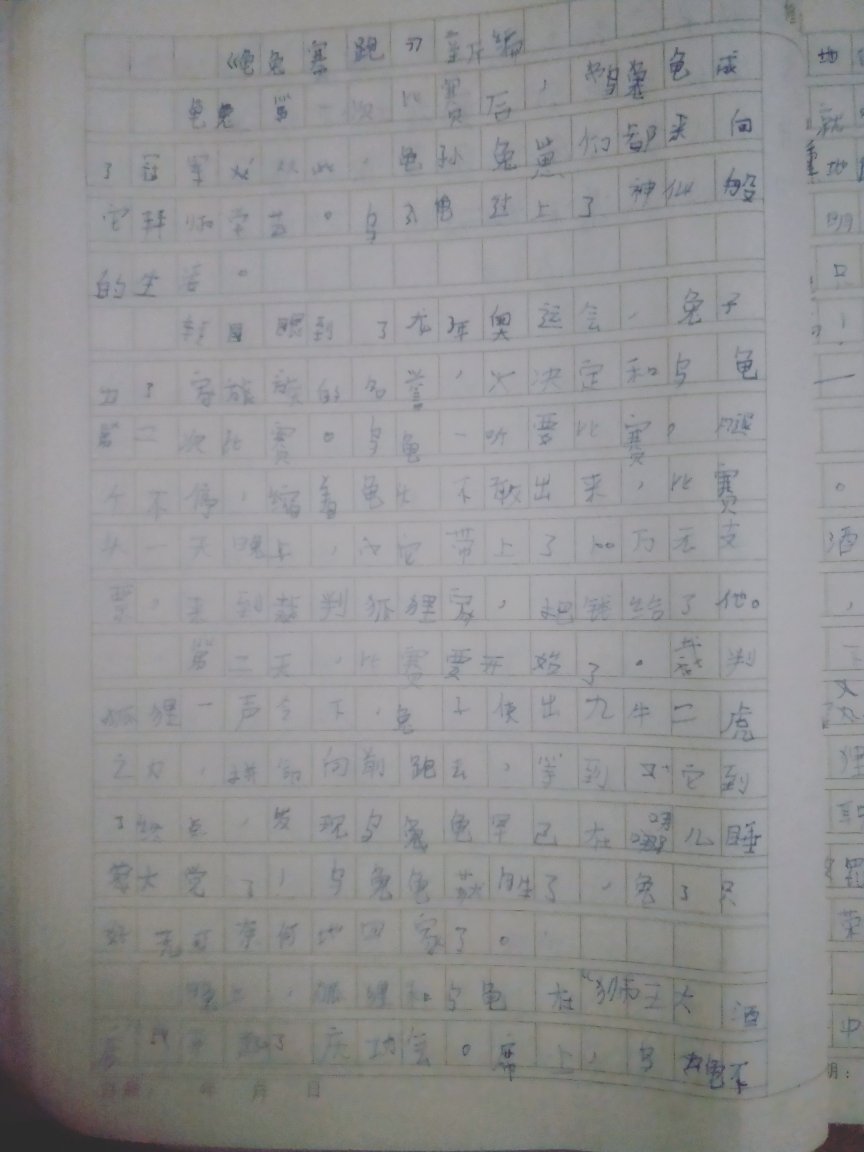 《龟兔赛跑》新编
龟兔第一次比赛后，乌龟成
了冠军，从此，龟孙兔崽们都来向
它拜师学艺。乌龟过上了神仙般
的生活。
转眼到了 年奥运会，兔子
为了家族的名誉，决定和乌龟
第二次比赛。乌龟一听要比赛，腿
不停，缩着龟 不敢出来，比赛
头一天晚上，它带上了100万元支
票，来到裁判狐狸家，把钱给了他。
第二天，比赛要开始了。裁判
狐狸一声令下，兔子使出九牛二虎
之力，拼命向前跑去，等到它到
了终点，发现乌龟早已在那儿睡
大觉了！乌龟获胜了，兔子只
好无可奈何地回家了。
晚上，狐狸和乌龟在"狮王大酒
店"开起了庆功会。席上，乌龟不
年 月 日
地
就
地
明
只
！
一
。
酒
，
狸
荣
中